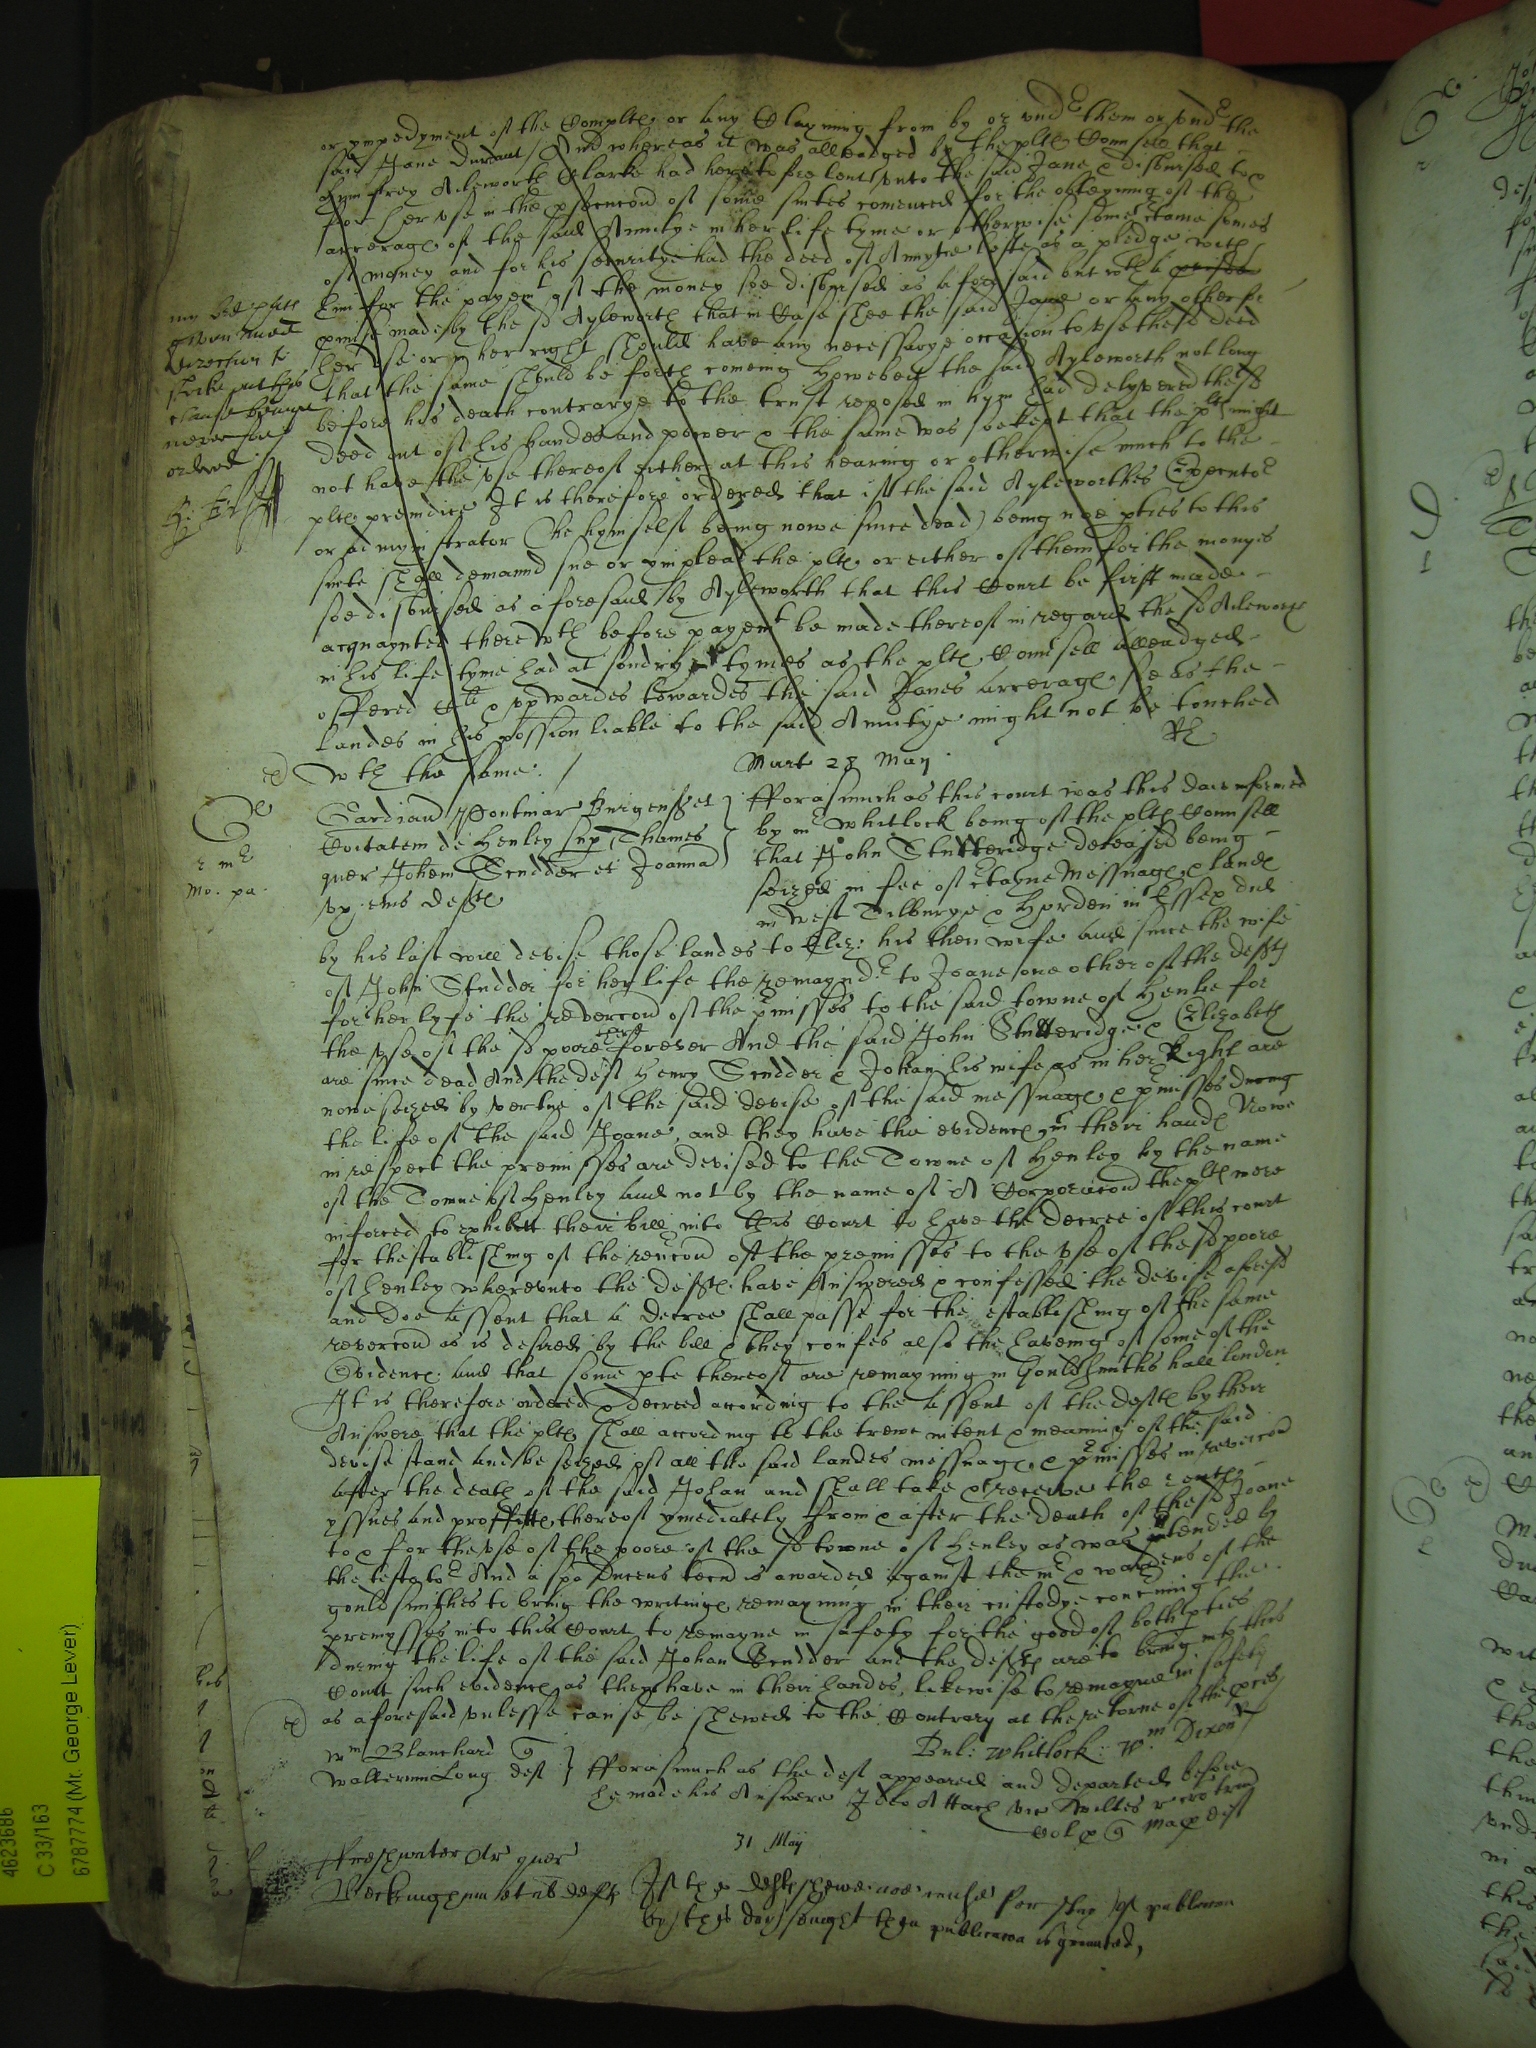 or ympedyment of the Complts or any Clayming from by or undr them or undr the
said Jane Durant / And whereas it was alleadged by the plts Counsell that
Humfrey Ailworth Clarke had heretofore lent unto the said Jane & disbursed
for her use in the psecucon of some suites comenced for the obteyning of the
arrerage of the said Annuitye in her life tyme or otherwise some ctaine somes
of money and for his securitye had the deed of Annuytie lefte as a pledge with
him for the paiemt of the money soe disbursed as afore said but wth a
pmise made by the sd Ayleworth that in Case shee the said Jane or any other for
her use or in her right should have any necessarye occasion to use the sd deed
that the same should be forth coming Howebeit the said Ayleworth not long
before his death contrarye to the trust reposed in hym had delyvered the sd
deed out of his handes and power & the same was soe kept that the plts might
not have the use thereof either at this hearing or otherwise much to the
plts preiudice It is therefore ordered that if the said Ayleworthes Executor
or admynistrator (he hymself being nowe since dead) being noe pties to this
suite shall demaund sue or ymplead the plts or either of them for the monyes
soe disbursed as aforesaid by Ayleworth that this Court be first made
acquaynted therewth before payemt be made thereof in regard the sd Aileworth
in his life tyme had at sondrye tymes as the plts Counsell alleadged
offered & upwardes towardes the said Janes arrerage soe as the
landes in his possion liable to the said Annuitye might not be touched
wth the same. /
my
given
direction to
strike out this
clause being
never soe
ordered
Mart 28 May
r mr
mo. pa.
Gardian Pontinar Burgenses et
Coitatem de Henley sup Thames
quer Johem Scudder et Joanna
ux eius defts
fforasmuch as this court was this daie informed
by mr Whitlock being of the plts Counsell
that John Stutteridge deceased being
seized in fee of ctayne Messuages & landes
in West Tilburye & Horden in Essex did
by his last will devise those landes to Eliz: his then wife and since the wife
of John Scudder for her life the remayndr to Joane one other of the defts
for her lyfe the revercon of the pmisses to the said towne of Henlie for
the use of the sd poore there forever And the said John Stutteridge & Elizabeth
are since dead And the deft Henry Scudder & Johan his wife as in her Right are
nowe seized by vertue of the said devise of the said messuages & pmisses during
the life of the said Joane, and they have the evidences in their handes Nowe
in respect the premisses are devised to the Towne of Henley by the name
of the Towne of Henley and not by the name of A Corporacon the plts were
inforced to exhibitt their bill into this Court to have the decree of this court
for thestablishing of the revcon of the premisses to the use of the sd poore
of Henley whereunto the defts have Answered & confessed the devise aforesd
and doe assent that a decree shall passe for the establishing of the same
revercon as is desired by the bill & they confes also the haveing of some of the
Evidences and that some pte thereof are remayning in Gouldsmiths hall london
It is therefore ordered & decreed according to the assent of the defts by their
Answere that the plts shall according to the trewe intent & meaning of the said
devise stand and be seized of all the said landes messuages & pmisses in revercon
after the death of the said Johan and shall take & receive the rentes
yssues and proffitts thereof ymediately from & after the death of the sd Joane
to & for the use of the poore of the sd towne of Henley as was intended by
the testator And a spa Ducens tecu is awarded against the mr & wardens of the
gouldsmithes to bring the writinges remayning in their custodye concerning the
premysses into this Court to remayne in safety for the good of both pties
during the life of the said Johan Scudder and the defts are to bring into this
Court such evidences as they have in their handes, likewise to remayne in safety
as aforesaid unlesse cause be shewed to the Contrary at the retorne of the pces
Bul: Whitlock: Wm Dixon
Wm Blanchard q
Walterum Long deft
fforasmuch as the deft appeared and departed before
he made his Answere Ideo Attach vic Wiltes
31 May
Freshwater Ar quer
et ux defts
If the defts shewe noe cause for stay of publicacon
by this day sevnight then publicacon is graunted,
462368b
C 33/163
6787774 (Mt. George Lever)